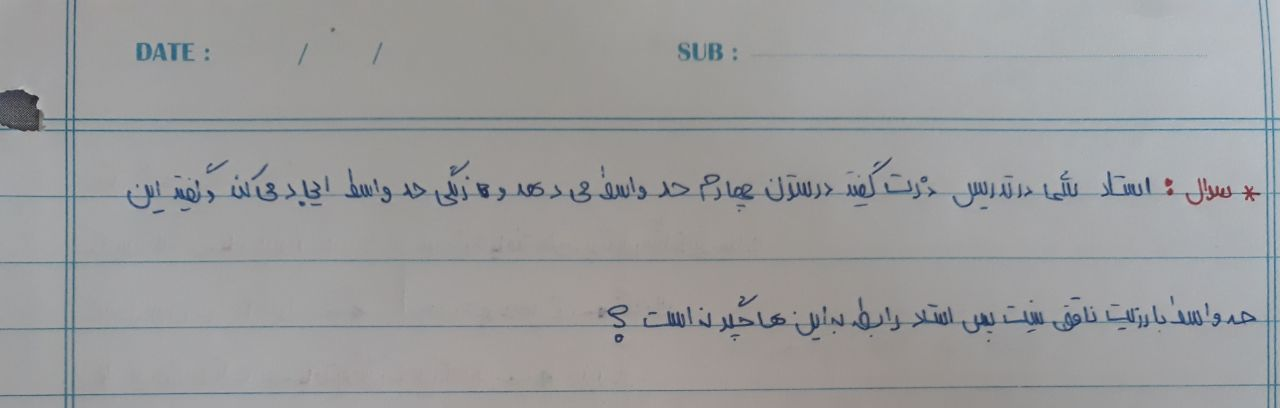 DATE : / / SUB :
* سوال : استاد شما در تدریس گفتید در ستون چهارم حد واسط می دهد و حد واسط ایجاد می کند گفتید این
حد واسط با ناقص نیست پس استاد رابطه به این ها چگونه است ؟